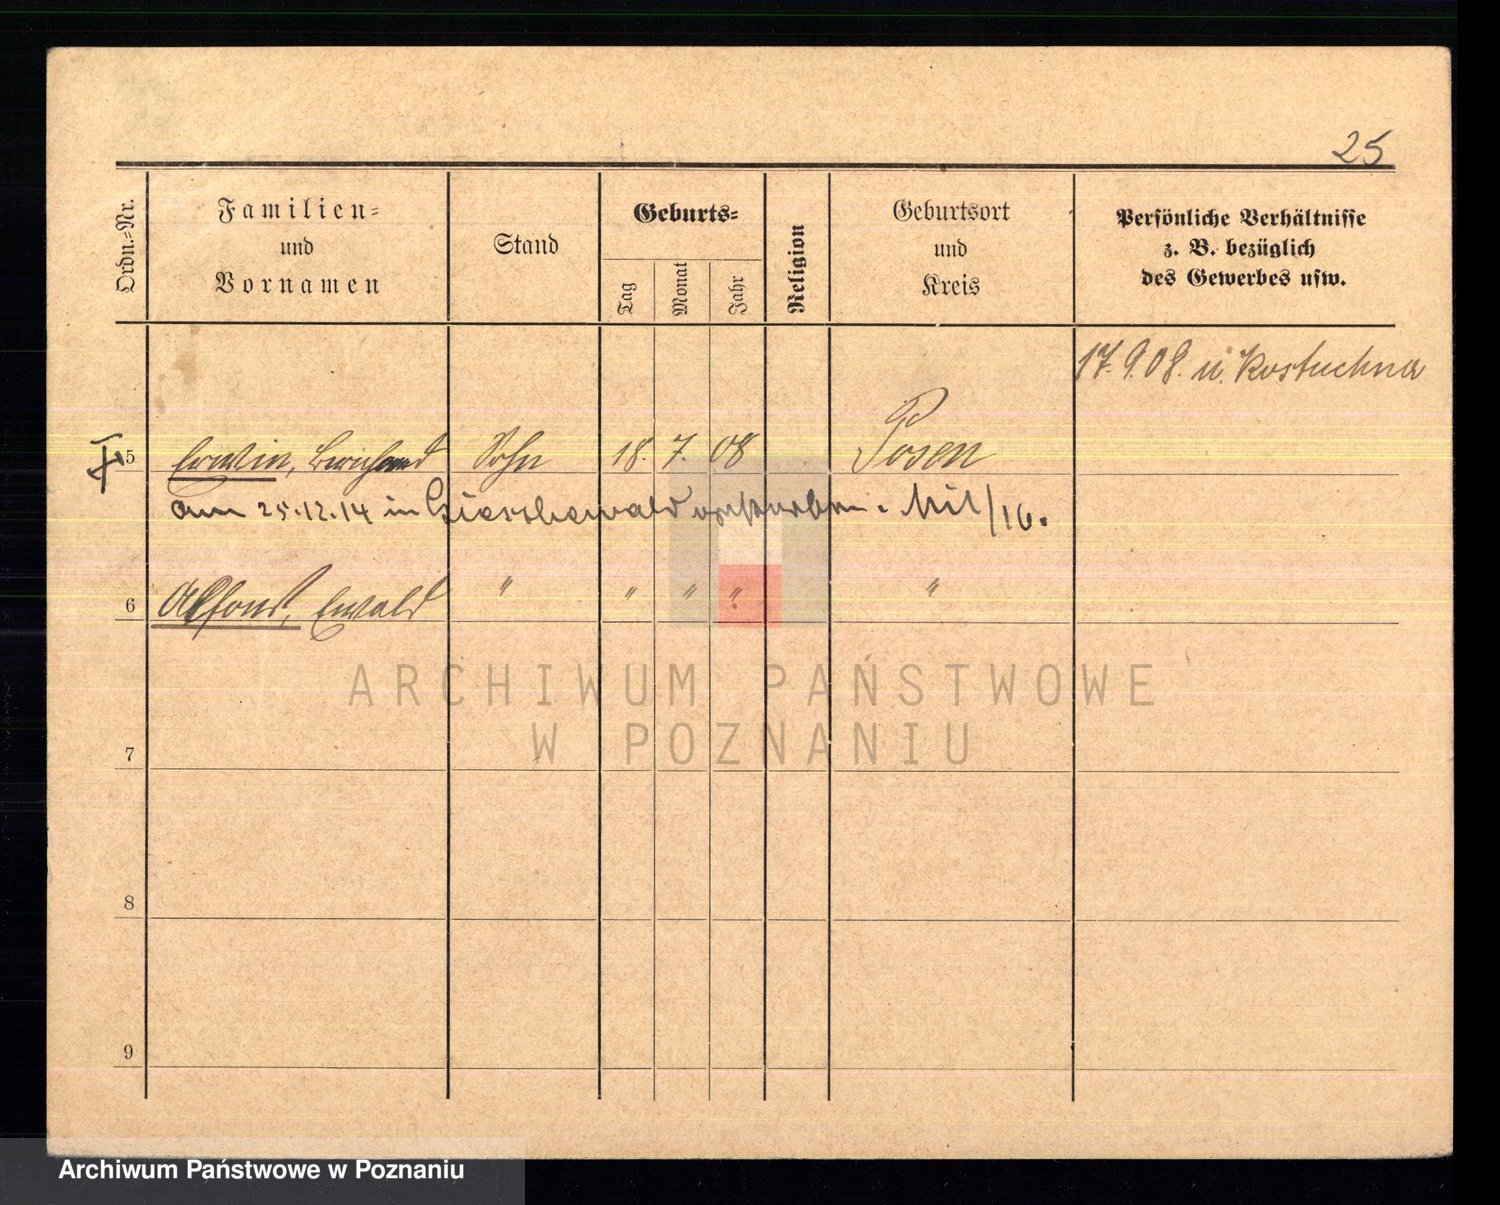 25
Ordn.-Nr.
Familien-
und
Vornamen
Stand
Geburts-
Tag
Monat
Jahr
Religion
Geburtsort
und
Kreis
Persönliche Verhältnisse
z. B. bezüglich
des Gewerbes usw.
17.9.08. n. Kostuchna
5 Erwin, Bernhard Sohn 18. 7. 08 Posen
am 25.12.14 in Gieschewald verstorben. Mil/16.
6 Alfons, Ewald " " " " "
ARCHIWUM PAŃSTWOWE
W POZNANIU
7
8
9
Archiwum Państwowe w Poznaniu